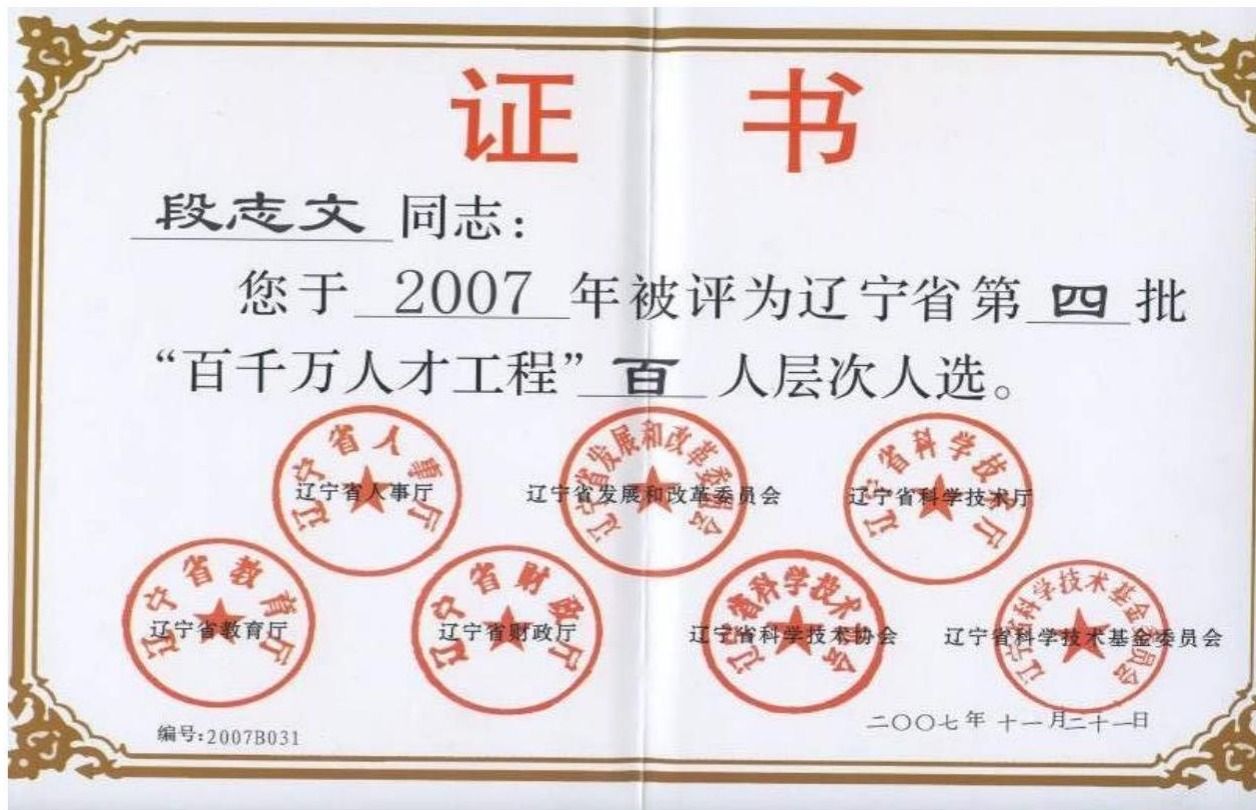 证 书
段志文 同志：
您于 2007 年被评为辽宁省第 四 批
“百千万人才工程” 百 人层次人选。
辽宁省人事厅
辽宁省人事厅
辽宁省发展和改革委员会
辽宁省发展和改革委员会
辽宁省科学技术厅
辽宁省科学技术厅
辽宁省教育厅
辽宁省教育厅
辽宁省财政厅
辽宁省财政厅
辽宁省科学技术协会
辽宁省科学技术协会
辽宁省科学技术基金委员会
辽宁省科学技术基金委员会
编号:2007B031
二〇〇七年 十一月二十一日